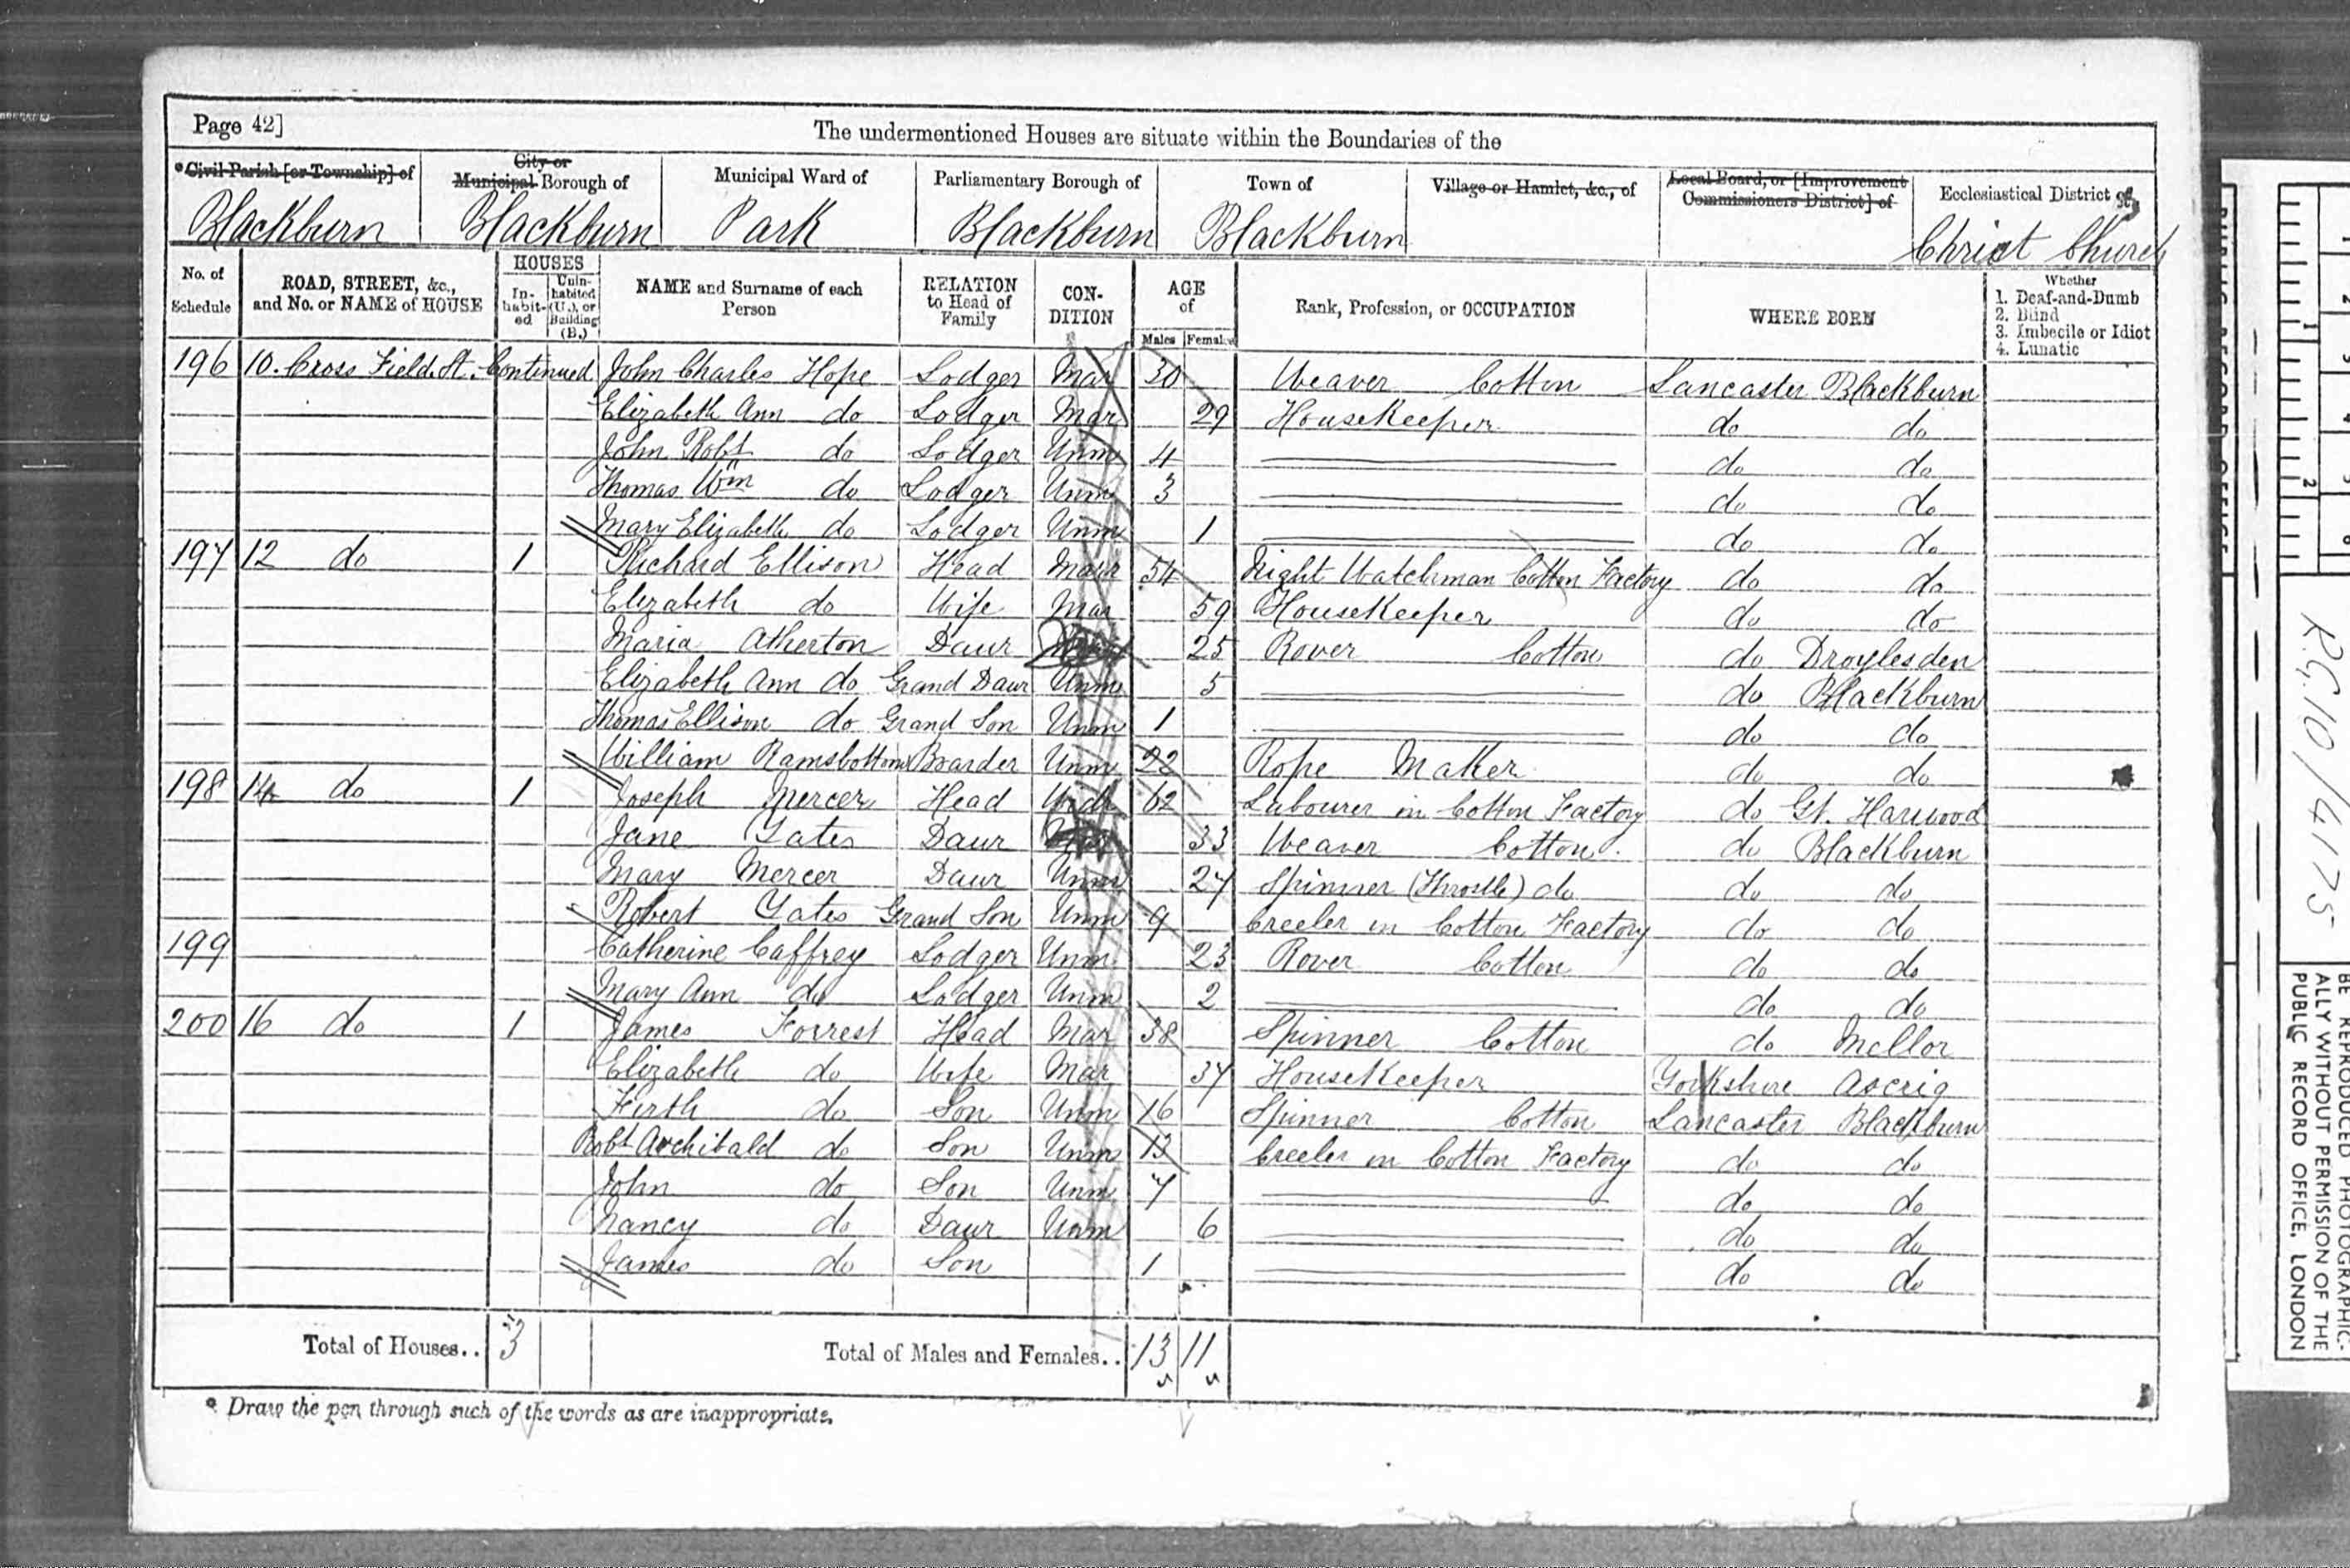 Page 42]
The undermentioned Houses are situate within the Boundaries of the
*Civil Parish [or Township] of
City or Municipal Borough of
Municipal Ward of
Parliamentary Borough of
Town of
Village or Hamlet, &c., of
Local Board, or [Improvement Commissioners District] of
Ecclesiastical District of
Blackburn Blackburn Park Blackburn Blackburn Christ Church
No. of Schedule
ROAD, STREET, &c., and No. or NAME of HOUSE
HOUSES
Inhabited
Uninhabited (U.), or Building (B.)
NAME and Surname of each Person
RELATION to Head of Family
CONDITION
AGE of
Males Females
Rank, Profession, or OCCUPATION
WHERE BORN
Whether
1. Deaf-and-Dumb
2. Blind
3. Imbecile or Idiot
4. Lunatic
196 10. Cross Field St. Continued John Charles Hope Lodger Mar 30 Weaver Cotton Lancaster Blackburn
Elizabeth Ann do Lodger Mar 29 Housekeeper do do
John Robt do Lodger Unm 4 do do
Thomas Wm do Lodger Unm 3 do do
Mary Elizabeth do Lodger Unm 1 do do
197 12 do 1 Richard Ellison Head Mar 54 Night Watchman Cotton Factory do do
Elizabeth do Wife Mar 59 Housekeeper do do
Maria Atherton Daur 25 Rover Cotton do Droylesden
Elizabeth Ann do Grand Daur Unm 5 do Blackburn
Thomas Ellison do Grand Son Unm 1 do do
William Ramsbottom Boarder Unm 22 Rope Maker do do
198 14 do 1 Joseph Mercer Head Widr 62 Labourer in Cotton Factory do Gt. Harwood
Jane Yates Daur 33 Weaver Cotton do Blackburn
Mary Mercer Daur Unm 27 Spinner (Throstle) do do do
Robert Yates Grand Son Unm 9 Creeler in Cotton Factory do do
199 Catherine Caffrey Lodger Unm 23 Rover Cotton do do
Mary Ann do Lodger Unm 2 do do
200 16 do 1 James Forrest Head Mar 38 Spinner Cotton do Mellor
Elizabeth do Wife Mar 37 Housekeeper Yorkshire Ascrig
Firth do Son Unm 16 Spinner Cotton Lancaster Blackburn
Robt Archibald do Son Unm 13 Creeler in Cotton Factory do do
John do Son Unm 7 do do
Nancy do Daur Unm 6 do do
James do Son 1 do do
Total of Houses.. 3 Total of Males and Females.. 13 11
* Draw the pen through such of the words as are inappropriate.
R.G. 10/4175
BE REPRODUCED PHOTOGRAPHIC-
ALLY WITHOUT PERMISSION OF THE
PUBLIC RECORD OFFICE, LONDON